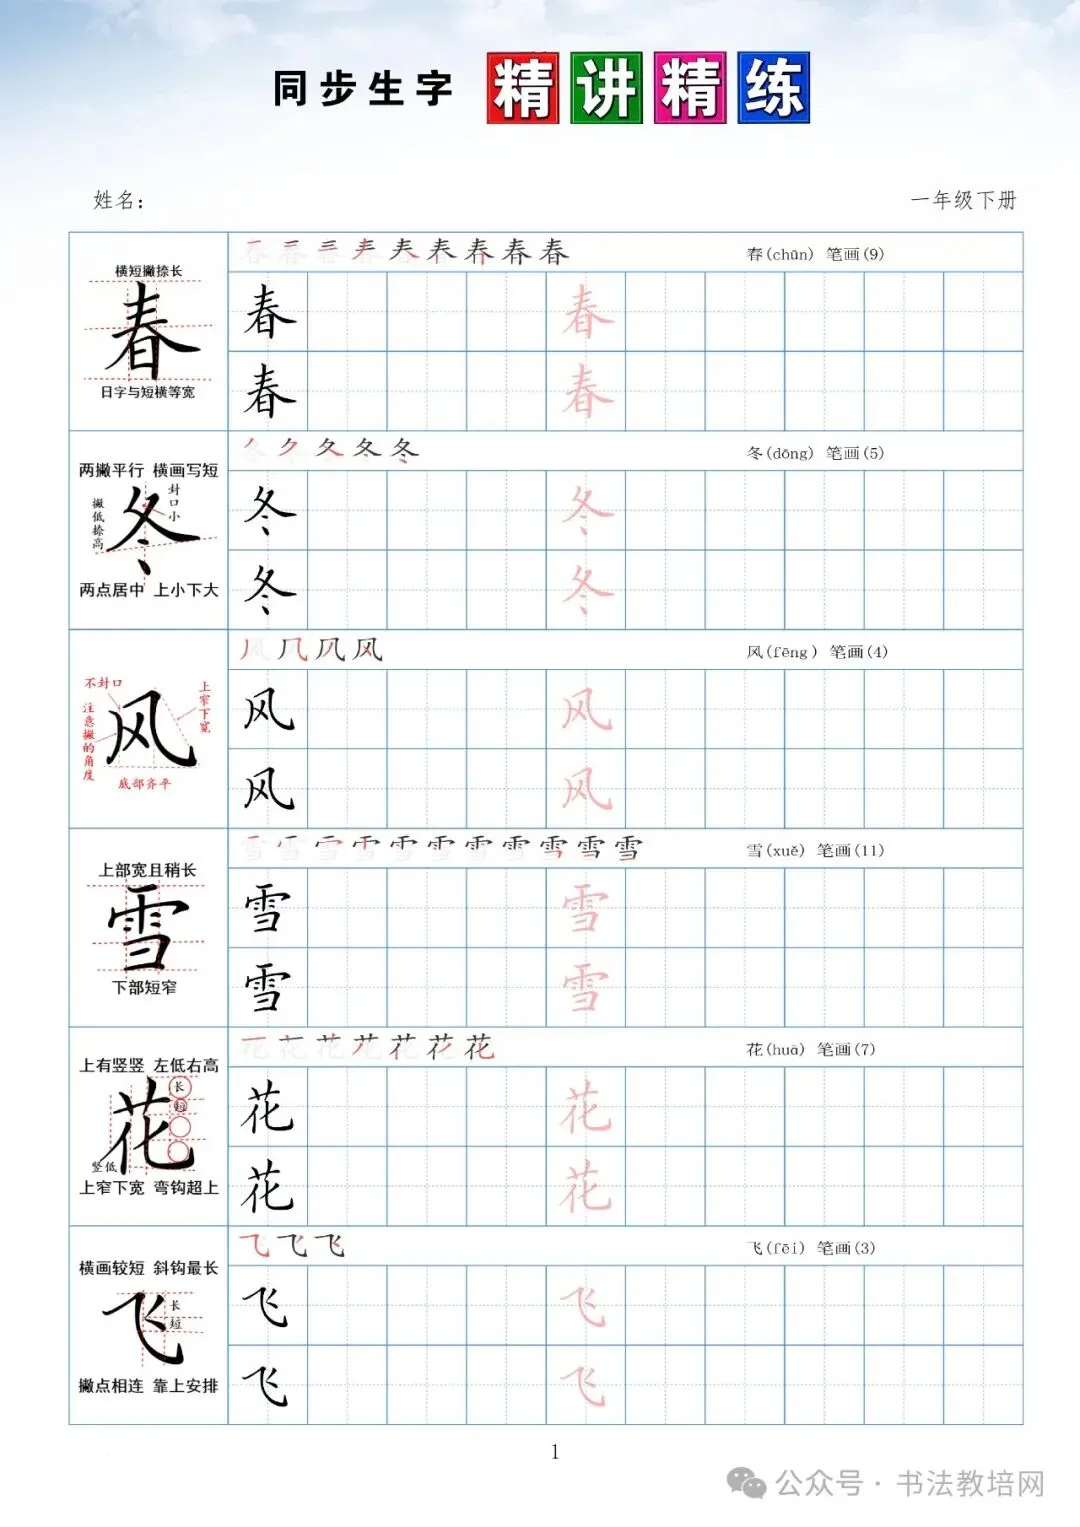 同步生字 精讲精练
姓名：
一年级下册
横短撇捺长
春
日字与短横等宽
春(chūn) 笔画(9)
春 春
春 春
两撇平行 横画写短
封口小
撇低捺高
冬
两点居中 上小下大
冬(dōng) 笔画(5)
冬 冬
冬 冬
不封口
上窄下宽
注意撇的角度
风
底部齐平
风(fēng) 笔画(4)
风 风
风 风
上部宽且稍长
雪
下部短窄
雪(xuě) 笔画(11)
雪 雪
雪 雪
上有竖竖 左低右高
长
短
花
竖低
上窄下宽 弯钩超上
花(huā) 笔画(7)
花 花
花 花
横画较短 斜钩最长
长
短
飞
撇点相连 靠上安排
飞(fēi) 笔画(3)
飞 飞
飞 飞
1
公众号·书法教培网